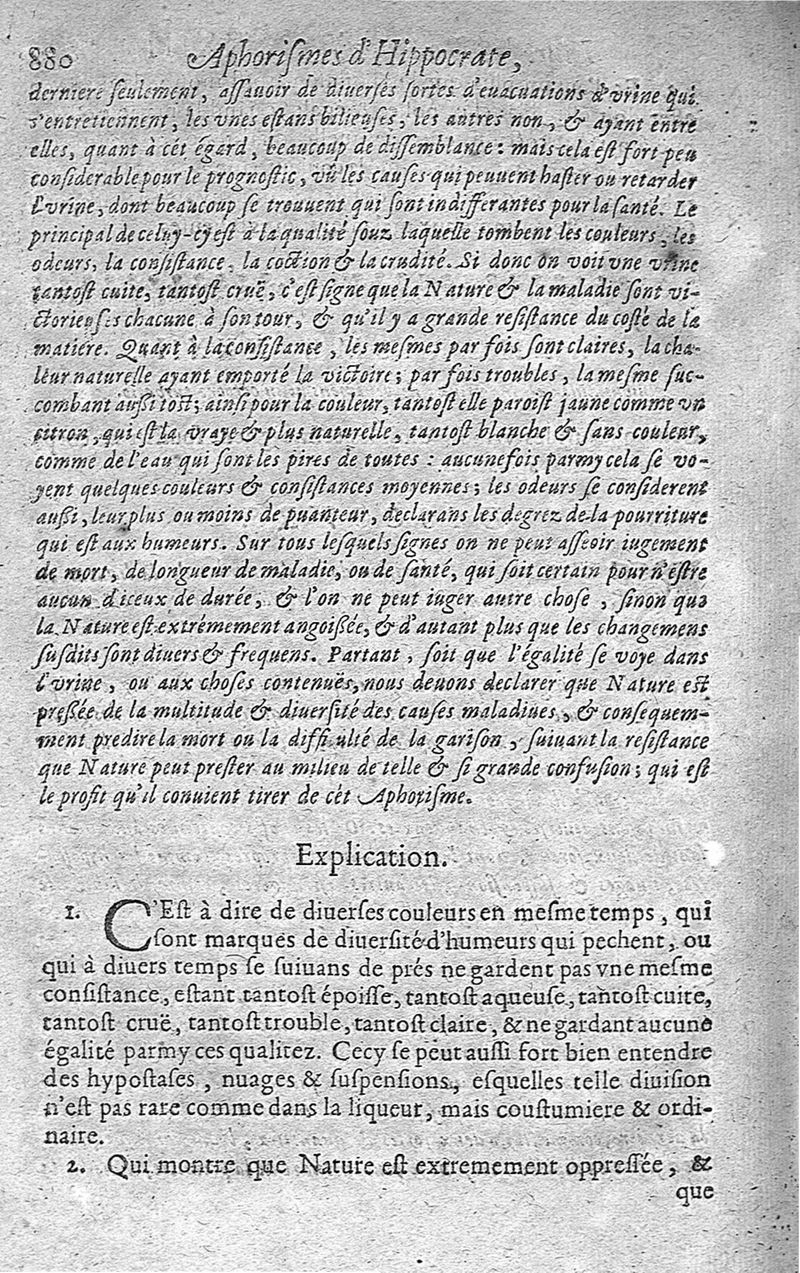 880 Aphoriſmes d'Hippocrate,
derniere ſeulement, aſſauoir de diuerſes ſortes d'euacuations d'vrine qui
s'entretiennent, les vnes eſtans bilieuſes, les autres non, & ayant entre
elles, quant à cét égard, beaucoup de diſſemblance: mais cela eſt fort peu
conſiderable pour le prognoſtic, vû les cauſes qui peuuent haſter ou retarder
l'vrine, dont beaucoup ſe trouuent qui ſont indifferantes pour la ſanté. Le
principal de celuy-cy eſt à la qualité ſouz laquelle tombent les couleurs, les
odeurs, la conſiſtance, la coction & la crudité. Si donc on voit vne vrine
tantoſt cuite, tantoſt cruë, c'eſt ſigne que la Nature & la maladie ſont vi-
ctorieuſes chacune à ſon tour, & qu'il y a grande reſiſtance du coſté de la
matiere. Quant à la conſiſtance, les meſmes par fois ſont claires, la cha-
leur naturelle ayant emporté la victoire; par fois troubles, la meſme ſuc-
combant auſſi toſt; ainſi pour la couleur, tantoſt elle paroiſt jaune comme vn
citron, qui eſt la vraye & plus naturelle, tantoſt blanche & ſans couleur,
comme de l'eau qui ſont les pires de toutes: aucunefois parmy cela ſe vo-
yent quelques couleurs & conſiſtances moyennes; les odeurs ſe conſiderent
auſſi, leur plus ou moins de puanteur, declarans les degrez de la pourriture
qui eſt aux humeurs. Sur tous leſquels ſignes on ne peut aſſeoir iugement
de mort, de longueur de maladie, ou de ſanté, qui ſoit certain pour n'eſtre
aucun d'iceux de durée, & l'on ne peut iuger autre choſe, ſinon que
la Nature eſt extrémement angoiſſée, & d'autant plus que les changemens
ſuſdits ſont diuers & frequens. Partant, ſoit que l'égalité ſe voye dans
l'vrine, ou aux choſes contenuës, nous deuons declarer que Nature eſt
preſſée de la multitude & diuerſité des cauſes maladiues, & conſequem-
ment predire la mort ou la difficulté de la gariſon, ſuiuant la reſiſtance
que Nature peut preſter au milieu de telle & ſi grande confuſion; qui eſt
le profit qu'il conuient tirer de cét Aphoriſme.
Explication.
1. C'Eſt à dire de diuerſes couleurs en meſme temps, qui
ſont marques de diuerſité d'humeurs qui pechent, ou
qui à diuers temps ſe ſuiuans de prés ne gardent pas vne meſme
conſiſtance, eſtant tantoſt époiſſe, tantoſt aqueuſe, tantoſt cuite,
tantoſt cruë, tantoſt trouble, tantoſt claire, & ne gardant aucune
égalité parmy ces qualitez. Cecy ſe peut auſſi fort bien entendre
des hypoſtaſes, nuages & ſuſpenſions, eſquelles telle diuiſion
n'eſt pas rare comme dans la liqueur, mais couſtumiere & ordi-
naire.
2. Qui montre que Nature eſt extremement oppreſſée, &
que